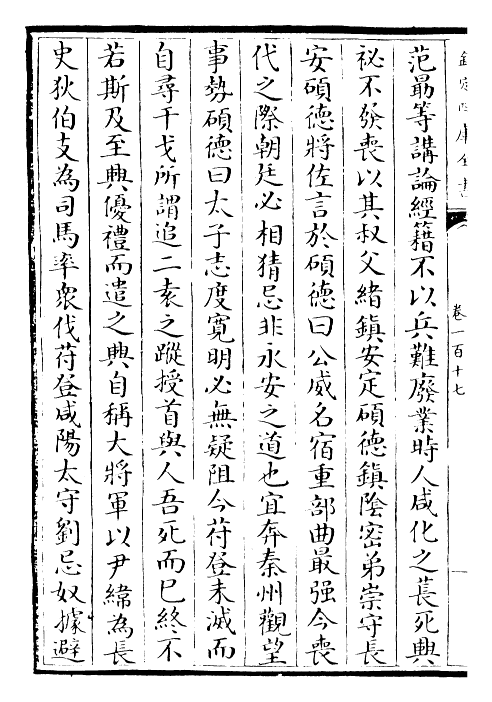 欽定四庫全書
卷一百十七
范勗等講論經籍不以兵難廢業時人咸化之萇死興
祕不發喪以其叔父緒鎮安定碩德鎮陰密弟崇守長
安碩德將佐言於碩德曰公威名宿重部曲最强今喪
代之際朝廷必相猜忌非永安之道也宜奔秦州觀望
事勢碩德曰太子志度寛明必無疑阻今苻登未滅而
自尋干戈所謂追二袁之蹤授首與人吾死而已終不
若斯及至興優禮而遣之興自稱大將軍以尹緯為長
史狄伯支為司馬率衆伐苻登咸陽太守劉忌奴據避